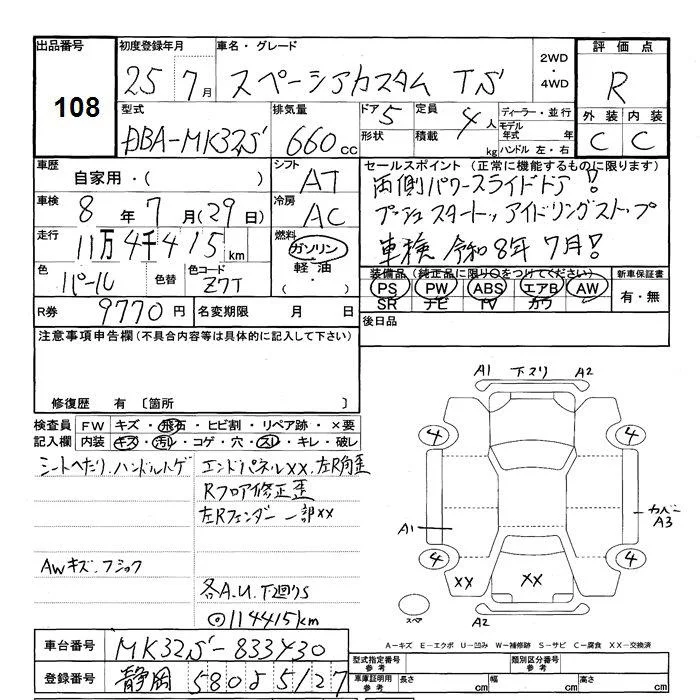 出品番号
108
初度登録年月
25年 7月
車名・グレード
スペーシアカスタム TS
2WD
・
4WD
評価点
R
外装 内装
C C
型式
DBA-MK32S
排気量
660 cc
ドア 5
形状
定員 4人
積載 kg
ディーラー・並行
モデル年式 年
ハンドル 左・右
車歴
自家用・( )
シフト
AT
車検
8年 7月(29日)
冷房
AC
走行
11万4千415 km
燃料
ガソリン
軽油
・( )
色
パール
色替
色コード
Z7T
セールスポイント (正常に機能するものに限ります)
両側パワースライドドア!
プッシュスタート、アイドリングストップ
車検 令和8年7月!
装備品(純正品に限り○をつけてください)
PS PW ABS エアB AW
SR ナビ TV カワ
新車保証書
有・無
R券
9770円
名変期限 月 日
後日品
注意事項申告欄(不具合内容等は具体的に記入して下さい)
修復歴 有 〔箇所 〕
検査員記入欄
FW キズ・飛石・ヒビ割・リペア跡・×要
内装 キズ・汚レ・コゲ・穴・スレ・キレ・破レ
シートへたり、ハンドルトゲ
エンドパネルXX、左R角歪
Rフロア修正歪
左Rフェンダー一部XX
AWキズ、フショク
各A.U.下廻りS
◎114415km
A1 下スリ A2
4 4
A1
カバー
A3
4 4
XX XX
スペア
A2
A-キズ E-エクボ U-凹み W-補修跡 S-サビ C-腐食 XX-交換済
車台番号
MK32S-833430
登録番号
静岡 580 さ 5127
型式指定番号
参考
類別区分番号
参考
車庫証明用
参考
長さ cm
幅 cm
高さ cm